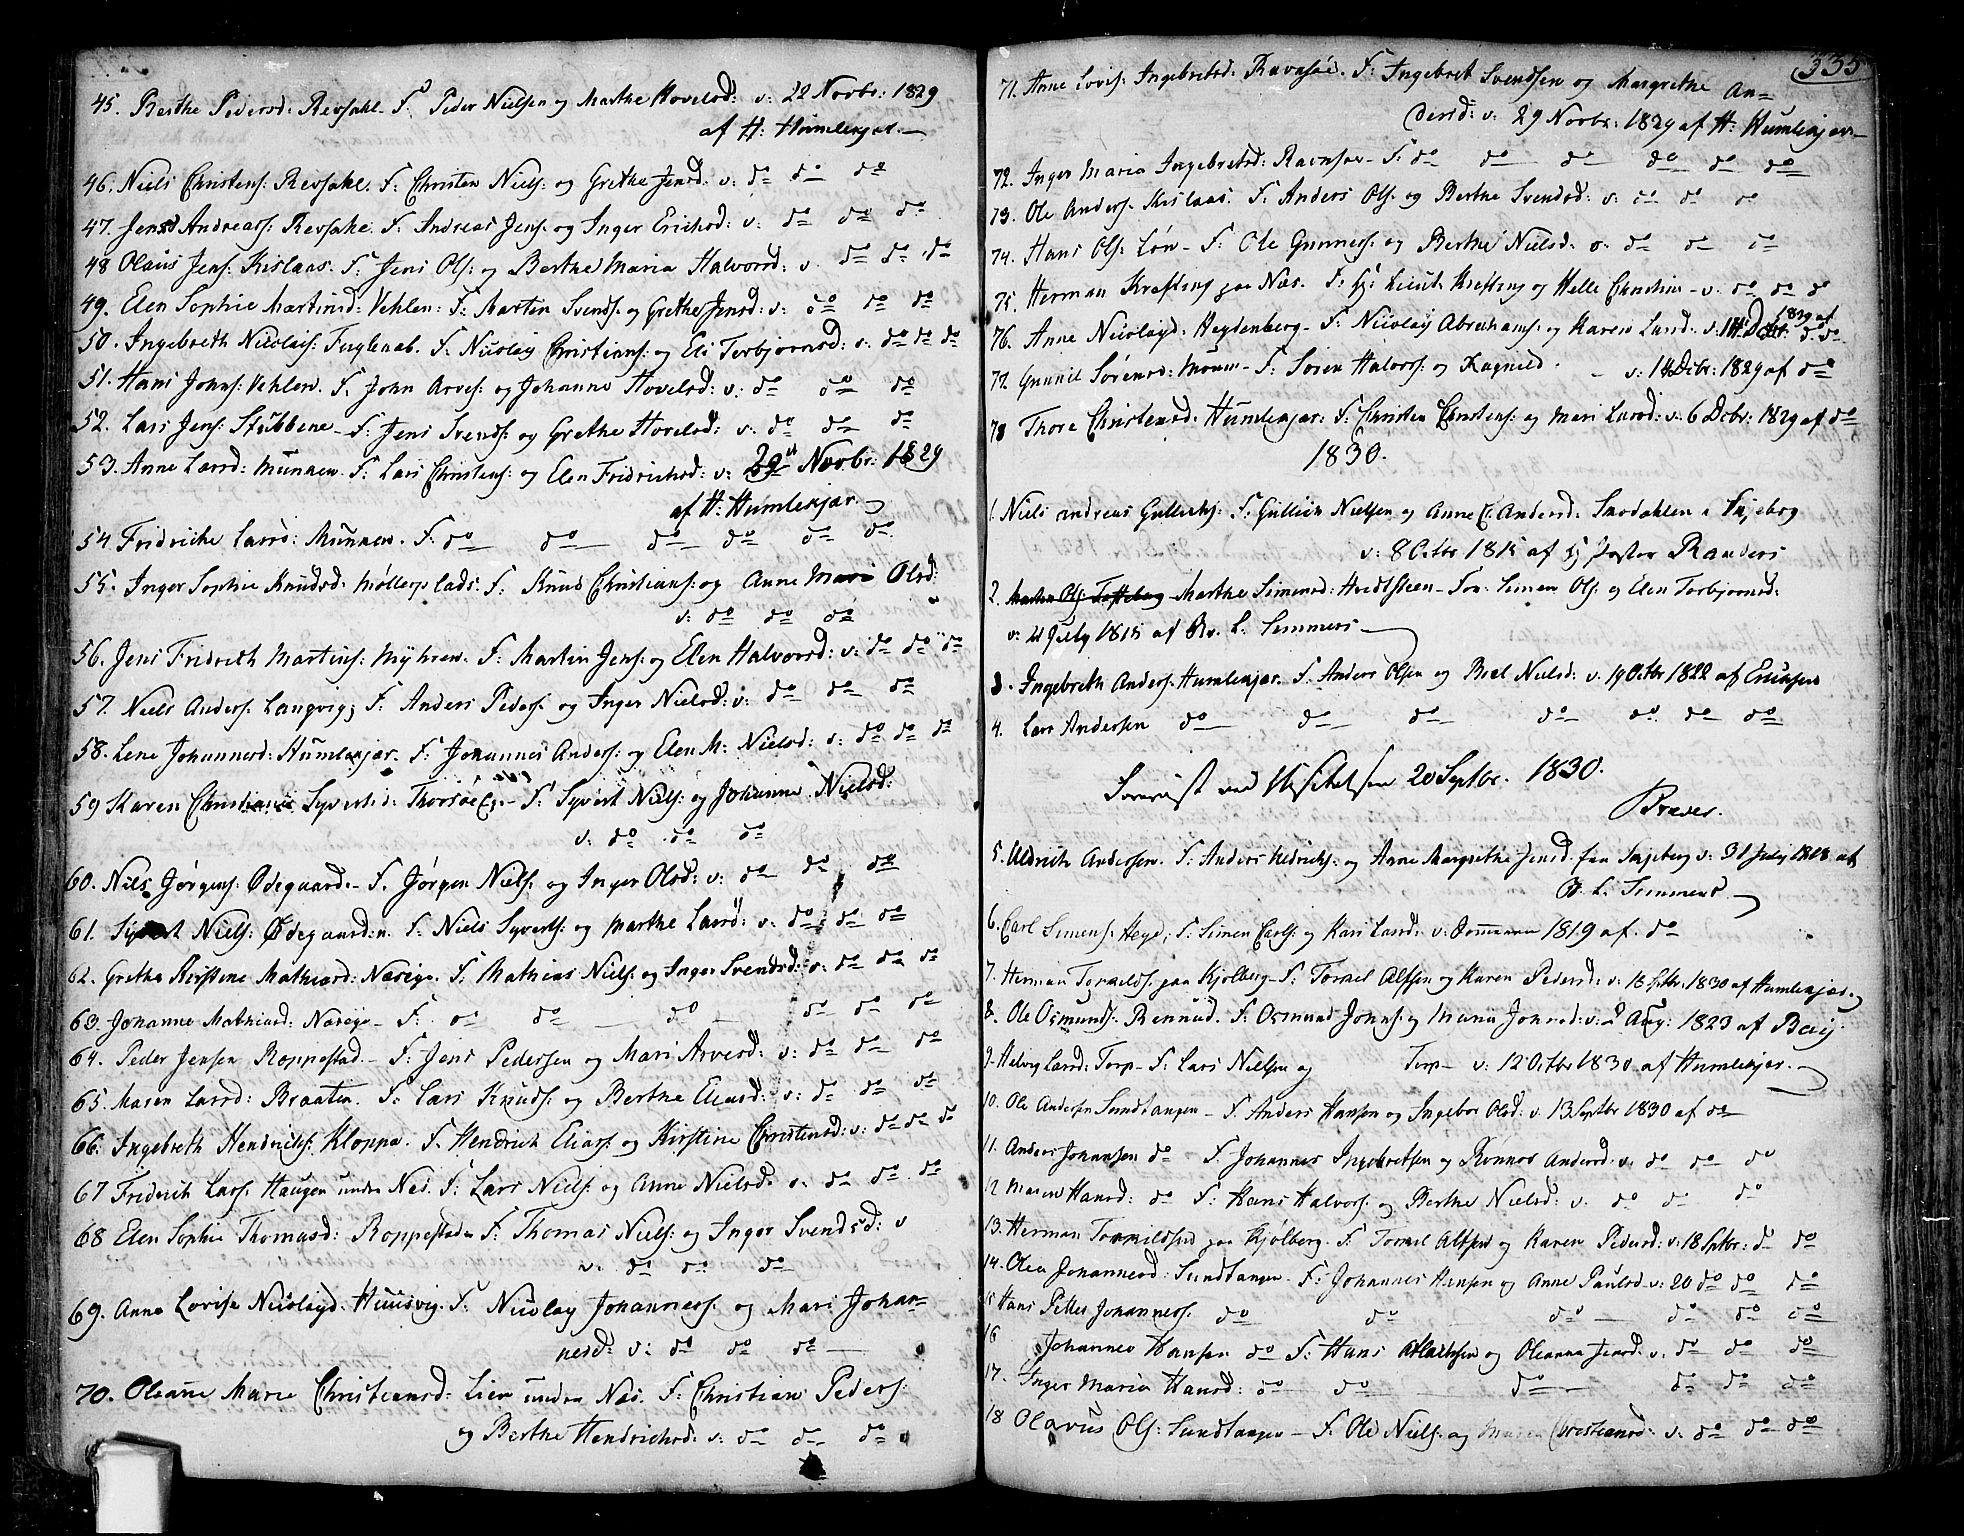 45. Berthe Pedersd: Revhake - F. Peder Nielsen og Marthe Hovelsd: v: 22 Novbr: 1829
af H: Humlekjær
46. Niels Christens: F. Christen Niels: og Grethe Jensd: v: do do do
47. Jens Andreass: F. Andreas Jens: og Inger Erichsd: v: do do do
48 Olaus Jens: Kislaas. F. Jens Ols: og Berthe Maria Halvorsd: v. do do do
49. Elen Sophie Martinsd: Vehlen: F: Martin Svends: og Grethe Jensd: v: do do do
50. Ingebreth Nicolais: F. Nicolay Christians: og Eli Torbjørnsd: v: do do do
51. Hans Johns: Vehlen. F. John Arves: og Johanne Hovelsd: v: do do do
52. Lars Jens: Stubbene - F. Jens Svends: og Grethe Hovelsd: v: do do do
53. Anne Larsd: Munken. F. Lars Christens: og Elen Fridrichsd: v: 29 Novbr: 1829
af H: Humlekjær
54 Fridriche Larsd: Munken. F: do do do do do do
55. Inger Sophie Knudsd: Møllerplads: F: Knud Christians: og Anne Mari Olsd:
v: do do do
56. Jens Fridrich Martins: Myhren. F. Martin Jens: og Elen Halvorsd: v: do do do
57. Niels Anders: Langvig; F. Anders Peders: og Inger Nielsd: v: do do do
58. Lene Johannesd: Humlekjær. F. Johannes Anders: og Elen M: Nielsd: v: do do do
59 Karen Syvertsd: F. Syvert Niels: og Johanne Nielsd:
v: do do do
60. Nils Jørgens: Ødegaard - F. Jørgen Niels: og Inger Olsd: v: do do do
61. Niels: Ødegaarden. F. Niels Syverts: og Marthe Larsd: v: do do do
62. Grethe Kirstine Mathiasd: F. Mathias Niels: og Inger Svendsd: v: do do do
63. Johanne Mathiasd: F. do do do do do do
64. Peder Jensen Roppestad - F. Jens Pedersen og Mari Arvesd: v: do do do
65. Maren Larsd: Braaten. F. Lars Knuds: og Berthe Eliasd: v: do do do
66. Ingebreth Hendrichs: Kloppe. F. Hendrich Elias: og Kirstine Christensd: v: do do do
67 Friderich Lars: Haugen under Næs. F: Lars Niels: og Anne Nielsd: v: do do do
68 Elen Sophie Thomasd: Roppestad F: Thomas Niels: og Inger Svendsd: v
v. do do do
69. Anne Lovise Nicolayd: Huusvig. F. Nicolay Johanness: og Mari Johan=
nesd: v: do do do
70. Oleane Marie Christiansd: Lien under Næs. F: Christian Peders:
og Berthe Hendrichsd: v: do do do
335
71. Anne Lovis: Ingebretsd: Ravnsøe. F: Ingebret Svendsen og Margrethe An=
dersd: v: 29 Novbr: 1829 af H: Humlekjær
72. Inger Maria Ingebretsd: Ravnsøe - F: do do do do do do
73. Ole Anders: Kislaas. F. Anders Ols: og Berthe Svendsd: v: do do do
74. Hans Ols: Løn - F: Ole Gunners: og Berthe Nielsd: v: do do do
75. Herman Krefting paa Næs. F: Hr: Lieut: Krefting og Helle Christine - v: do do do
76. Anne Nicolayd: Heydenberg - F. Nicolay Abrahams: og Karen Larsd. v: 14 Dcbr: 1829 af do
77. Gunnil Sørensd: Moum - F: Søren Halvors: og Ragnild. - v: 14 Dcbr: 1829 af do
78 Thore Christensd: Humlekjær: F. Christen Christens: og Mari Larsd: v: 6 Dcbr: 1829 af do
1830.
1. Niels Andreas Gulliks: F. Gullich Nielsen og Anne C. Andersd: i Snieberg
v: 8 Octbr 1815 af Hr Pastor Randers
2. Marthe Simensd: Hvidsteen - For: Simen Ols: og Elen Torbjørnsd:
v: 21 July 1815 af L. Simmers
3. Ingebreth Anders: Humlekjær. F. Anders Olsen og Nielsd: v. 19 Octbr 1822 af Erichsen
4. Lars Andersen do do do do do do do
Foreviist ved Visitatsen 20 Septbr. 1830.
5. Uldrich Andersen. F. Anders Uldrichs: og Anne Margrethe Jensd. fra Snieberg v: 31 July 1818 af
L. Simmers
6. Carl Simens: F: Simen Carls: og Kari Larsd: v: 1819 af do
7. Herman Tormilds: paa Kjølberg - F. Tormil Alfsen og Karen Pedersd: v: 18 Sptbr: 1830 af Humlekjær
8. Ole Osmunds: Rennud. F. Osmund Johns: og Maria Johnsd: v: 2 Aug: 1823 af Bay
9. Helvig Larsd: Torp - F. Lars Nielsen og Torp - v: 12 Octbr 1830 af Humlekjær.
10. Ole Andersen Sundtangen - F. Anders Hansen og Ingebor Olsd: v. 13 Septbr 1830 af do
11. Anders Johansen do F. Johannes Ingebretsen og Rønnov Andersd: v: do do do
12 Maren Hansd: do F. Hans Halvors: og Berthe Nielsd: v: do do do
13. Herman Tormildsen paa Kjølberg. F. Tormil Alfsen og Karen Pedersd: v: 18 Sptbr: do do
14. Olea Johannesd: Sundtangen - F. Johannes Hansen og Anne Paulsd - v: 20 do do do
15 Hans Petter Johanness. do do do do do do
16 Johannes Hansen do F: Hans og Oleanna Jensd. v. do do do
17. Inger Maria Hansd: do do do do do do
18 Olavus Ols: Sundtangen - F. Ole Niels: og Maren Christiansd: v: do do do